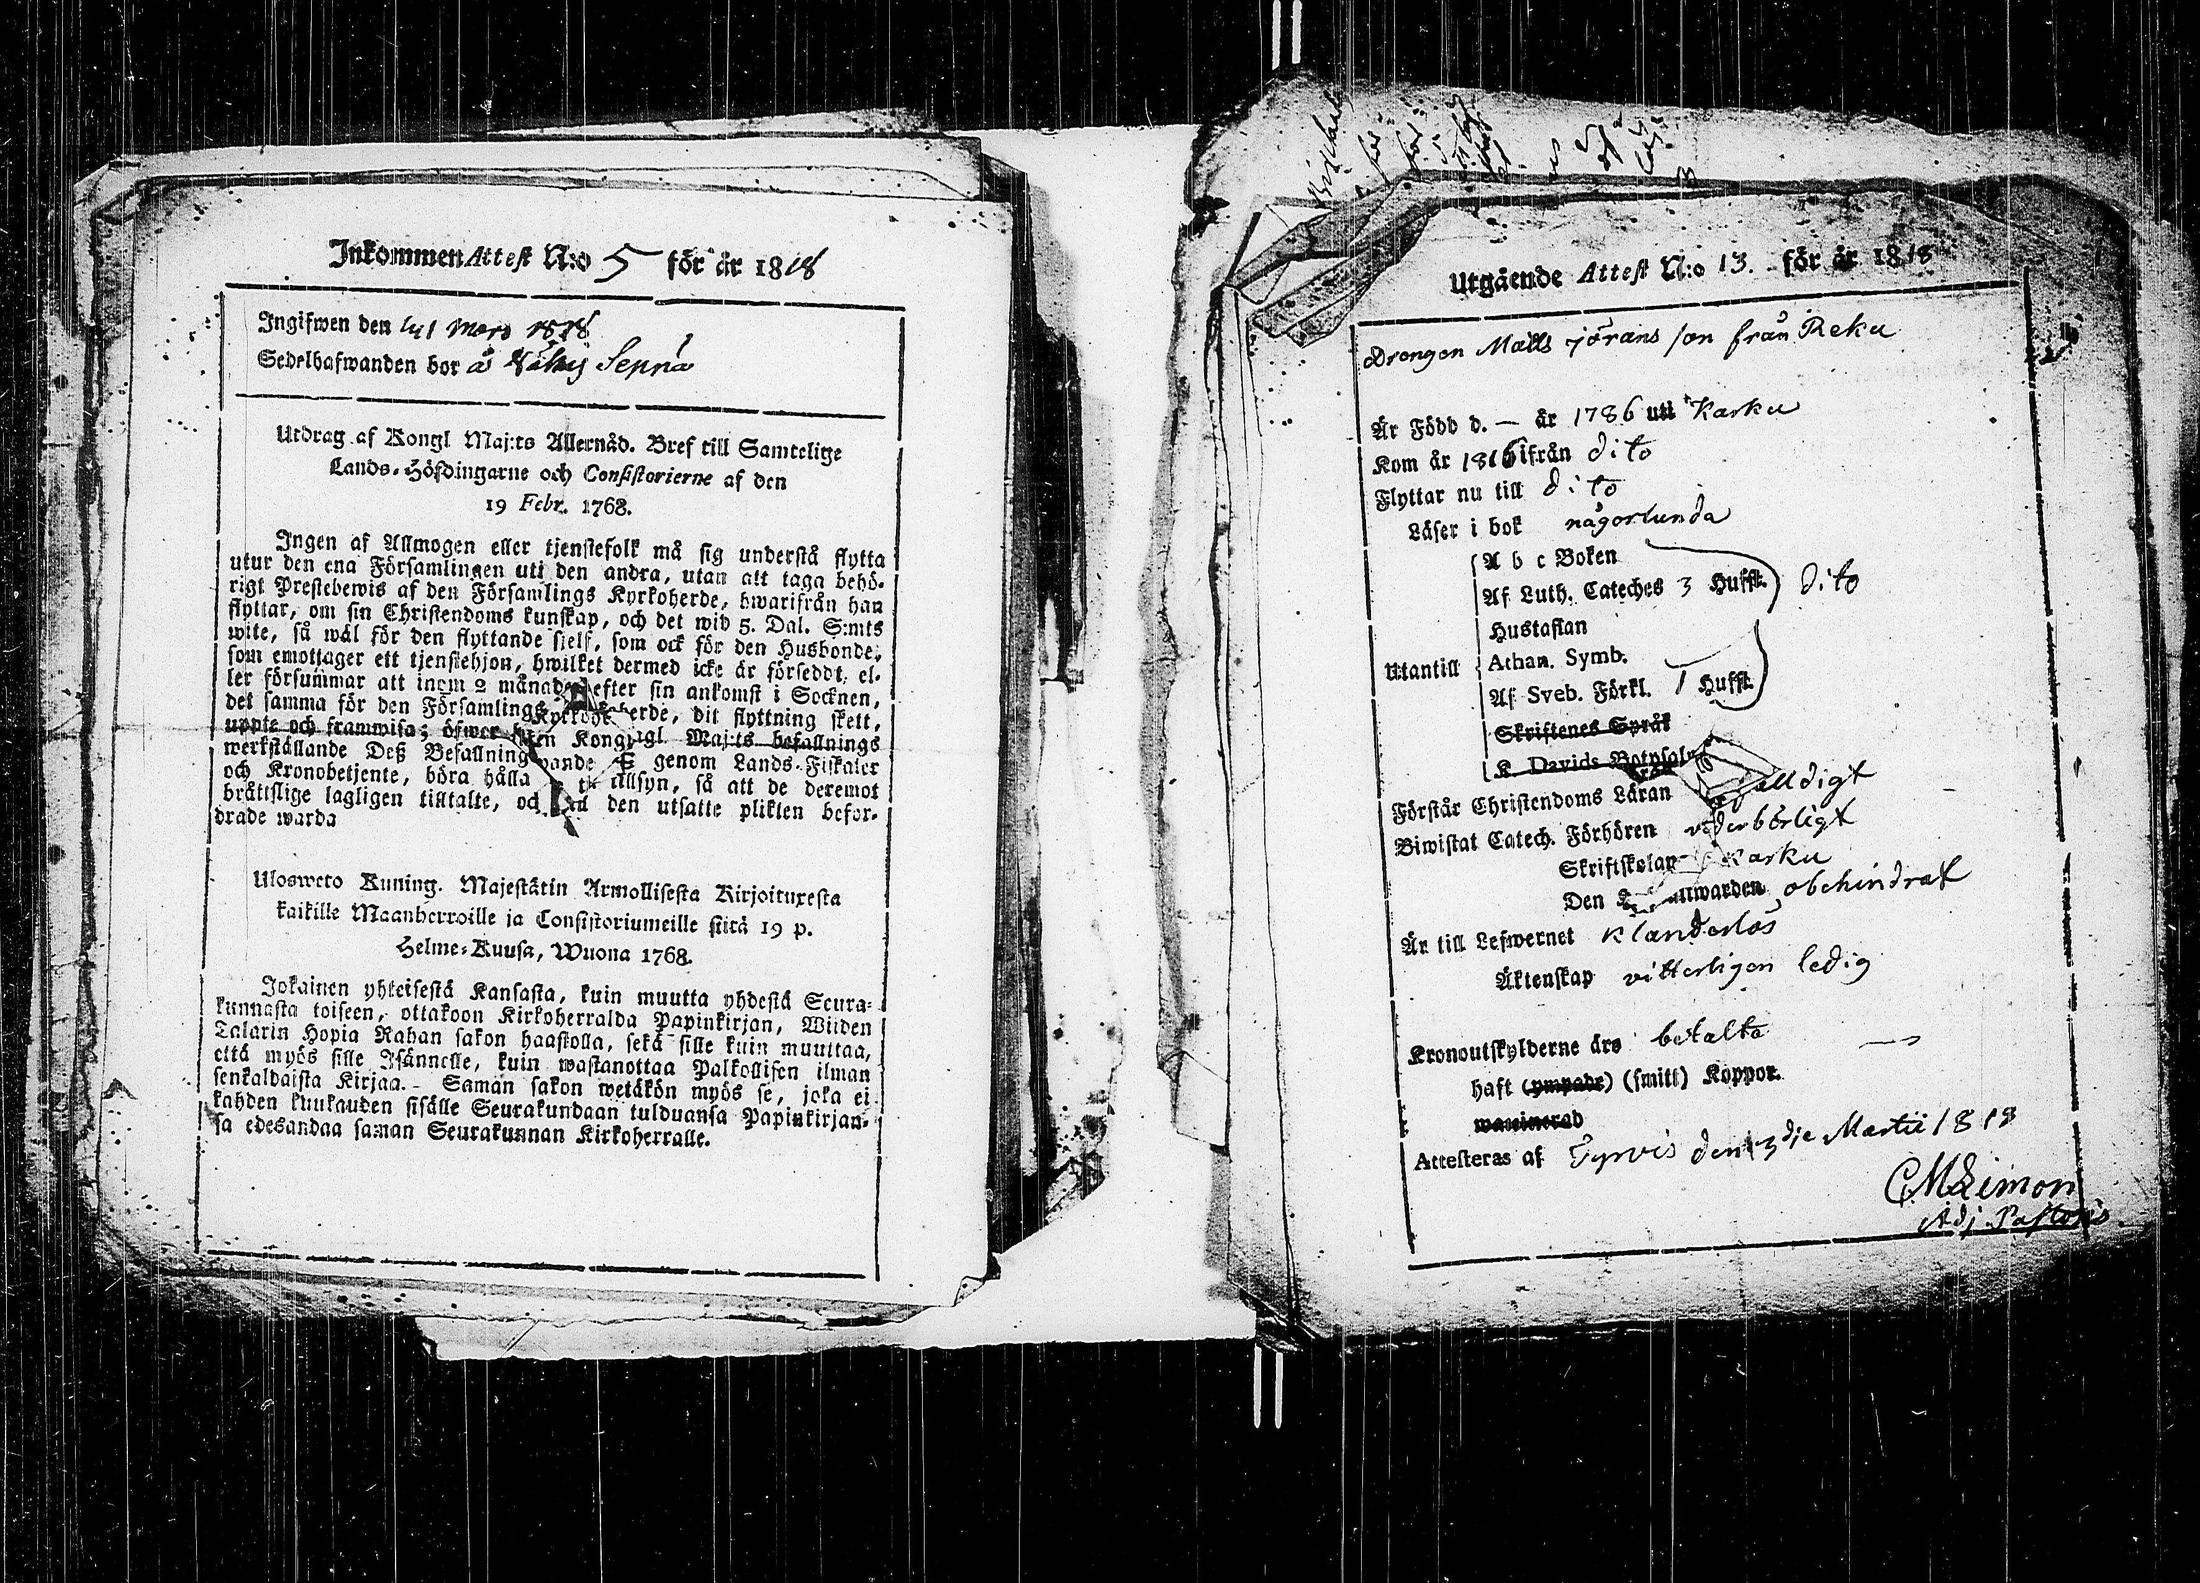 Inkommen Attest N:o 5 för år 1818
Ingifwen den 1818
Sedelhafwanden bor å Seppä
Utdrag af Kongl Maj:ts Allernåd. Bref till Samtelige
Lands-Höfdingarne och Consistorierne af den
19 Febr. 1768.
Ingen af Allmogen eller tjenstefolk må sig understå flytta
utur den ena Församlingen uti den andra, utan att taga behö-
rigt Prestebewis af den Församlings Kyrkoherde, hwarifrån han
flyttar, om sin Christendoms kunskap, och det wid 5. Dal. S:mts
wite, så wäl för den flyttande sielf, som ock för den Husbonde,
som emottager ett tjenstehjon, hwilket dermed icke är försedt, el-
ler försummar att inom 2 månader efter sin ankomst i Socknen,
det samma för den Församlings Kyrkoherde, dit flyttning skett,
uppte och framwisa; öfwer Kongl Maj:ts befallnings
werkställande Deß Befallning genom Lands-Fiskaler
och Kronobetjente, böra hålla tillsyn, så att de deremot
bråttslige lagligen tilltalte, och den utsatte plikten befor-
drade warda
Ulosweto Kuning. Majestätin Armollisesta Kirjoituxesta
kaikille Maanherroille ja Consistoriumeille siitä 19 p.
Helme-Kuusa, Wuona 1768.
Jokainen yhteisestä Kansasta, kuin muutta yhdestä Seura-
kunnasta toiseen, ottakoon Kirkoherralda Papinkirjan, Wiiden
Talarin Hopia Rahan sakon haastolla, sekä sille kuin muuttaa,
että myös sille Isännelle, kuin wastanottaa Palkollisen ilman
senkaldaista Kirjaa. Saman sakon wetäkön myös se, joka ei
kahden kuukauden sisälle Seurakundaan tulduansa Papinkirjan-
sa edesandaa saman Seurakunnan Kirkoherralle.
Utgående Attest N:o 13. för år 1818
Drengen Matts jörans son från Reku
Är Född d. — år 1786 uti Karku
Kom år 1816 ifrån dito
Flyttar nu till dito
Läser i bok någorlunda
A b c Boken
Af Luth. Cateches 3 Hufst. dito
Hustaflan
Utantill Athan. Symb.
Af Sveb. Förkl. 1 Hufst.
Skriftenes Språk
K. Davids Botpsalm
Förstår Christendoms Läran
Biwistat Catech. Förhören wederbörligt
Skriftskolan Karku
Den obehindrat
Är till Lefwernet klanderlös
Äktenskap vitterligen ledig
Kronoutskylderne äro betalta
haft (ympade) (smitt) Koppor.
waccinerad
Attesteras af Tyrvis den 3dje Martii 1818
CMLimon
Adj. Pastoris